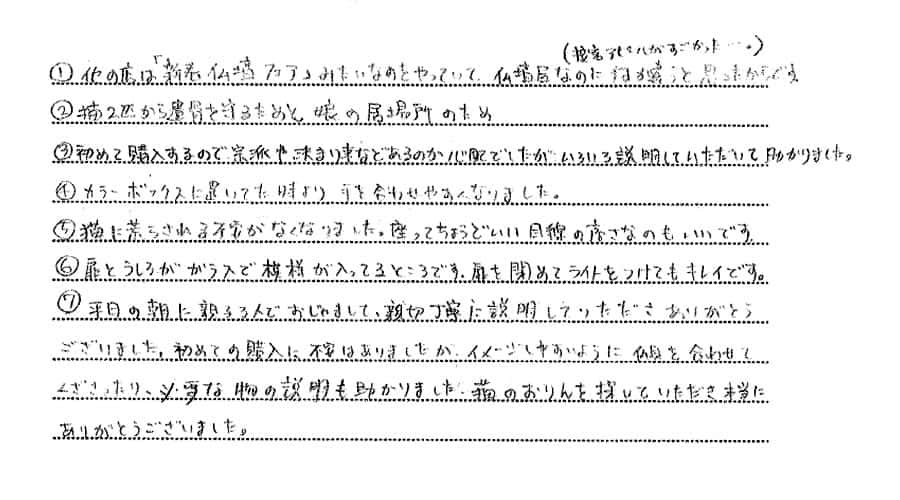 (接客アピールがすごかった…。)
①他の店は「新春仏壇フェア」みたいなのをやっていて、仏壇屋なのに何か違うと思ったからです
②猫2匹から遺骨を守るためと娘の居場所のため
③初めて購入するので宗派や決まり事などあるのか心配でしたが、いろいろ説明していただいて助かりました。
④カラーボックスに置いてた時より手を合わせやすくなりました。
⑤猫に荒らされる不安がなくなりました。座ってちょうどいい目線の高さなのもいいです
⑥扉とうしろがガラスで模様が入ってるところです。扉を閉めてライトをつけてもキレイです。
⑦平日の朝に親子3人でおじゃまして、親切丁寧に説明していただきありがとう
ございました。初めての購入に不安はありましたが、イメージしやすいように仏具を合わせて
くださったり、必要な物の説明も助かりました。猫のおりんを探していただき本当に
ありがとうございました。